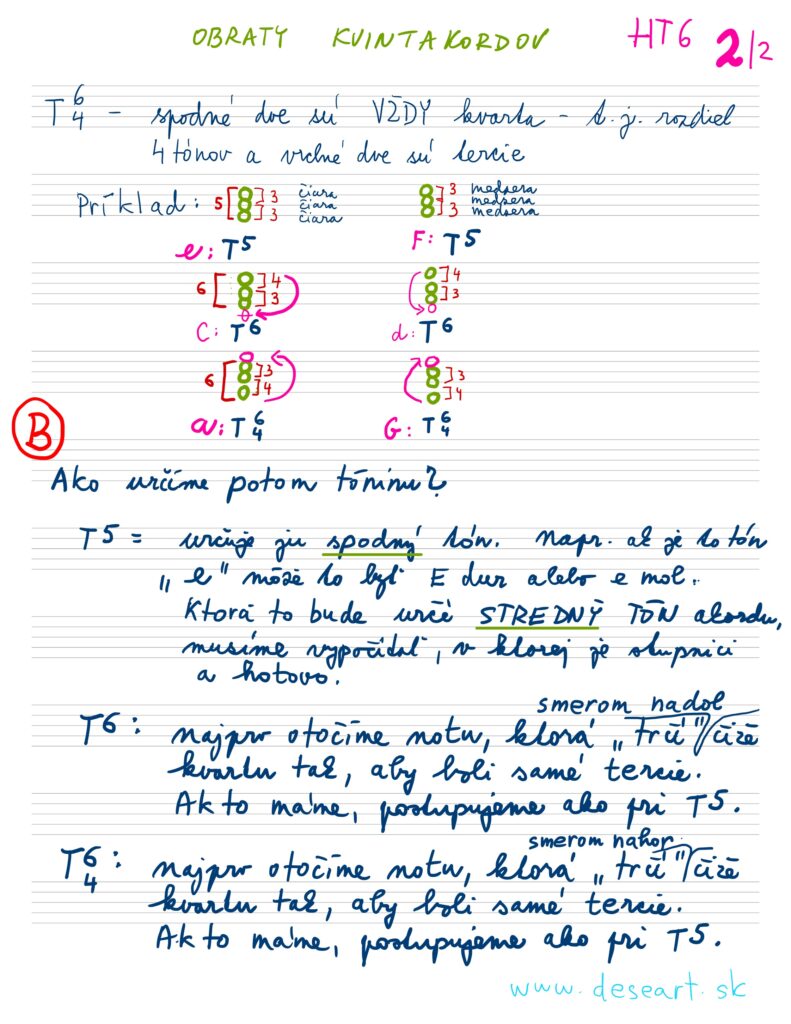 OBRATY KVINTAKORDOV HT6 2/2
T 6 4 - spodné dve sú VŽDY kvarta - t.j. rozdiel
4 tónov a vrchné dve sú tercie
Príklad: 5 3 3 čiara čiara čiara 3 3 medzera medzera medzera
e: T5 F: T5
6 4 3 4 3
C: T6 d: T6
6 3 4 3 4
a: T 6 4 G: T 6 4
B
Ako určíme potom tóninu?
T5 = určuje ju spodný tón. Napr. ak je to tón
„e" môže to byť E dur alebo e mol.
Ktorá to bude určí STREDNÝ TÓN akordu,
musíme vypočítať, v ktorej je stupnici
a hotovo.
smerom nadol
T6: najprv otočíme notu, ktorá „trčí"/čiže
kvartu tak, aby boli samé tercie.
Ak to máme, postupujeme ako pri T5.
smerom nahor
T 6 4: najprv otočíme notu, ktorá „trčí"/čiže
kvartu tak, aby boli samé tercie.
Ak to máme, postupujeme ako pri T5.
www.deseart.sk